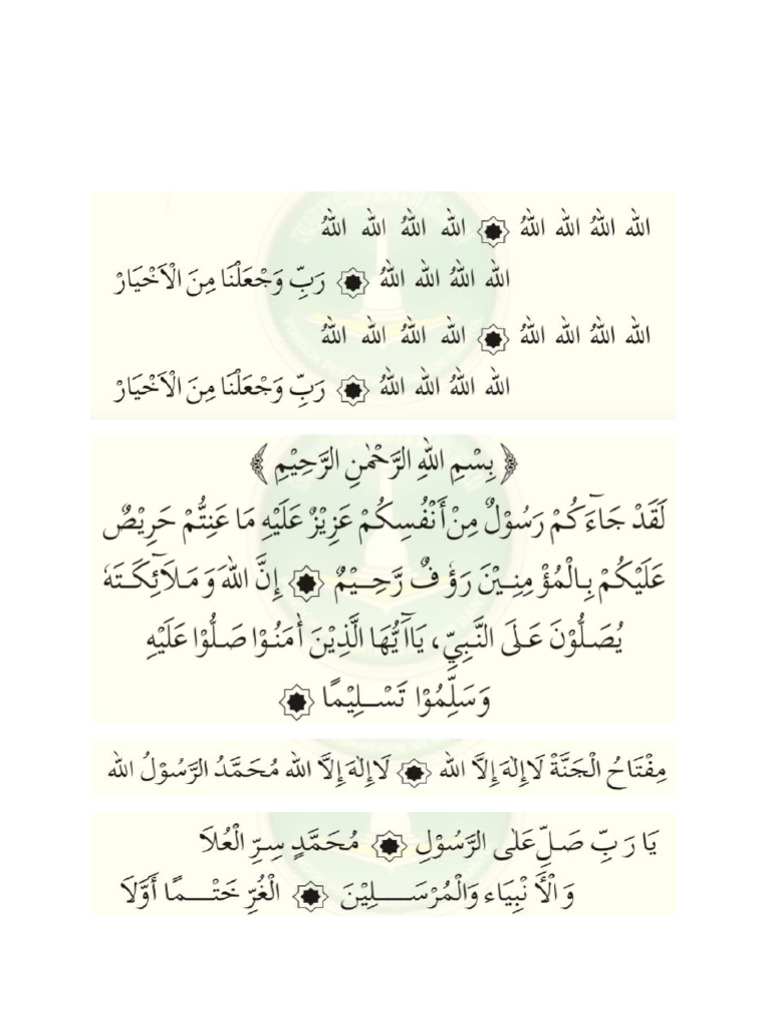 الله اللهُ الله اللهُ ۞ الله اللهُ الله اللهُ
الله اللهُ الله اللهُ ۞ رَبِّ وَجْعَلْنَا مِنَ الْاَخْيَارْ
الله اللهُ الله اللهُ ۞ الله اللهُ الله اللهُ
الله اللهُ الله اللهُ ۞ رَبِّ وَجْعَلْنَا مِنَ الْاَخْيَارْ
﴿ بِسْمِ اللهِ الرَّحْمٰنِ الرَّحِيْمِ ﴾
لَقَدْ جَآءَكُمْ رَسُوْلٌ مِنْ أَنْفُسِكُمْ عَزِيْزٌ عَلَيْهِ مَا عَنِتُّمْ حَرِيْصٌ
عَلَيْكُمْ بِالْمُؤْمِنِيْنَ رَؤُفٌ رَّحِيْمٌ ۞ إِنَّ اللهَ وَمَلَآئِكَتَهُ
يُصَلُّوْنَ عَلَى النَّبِيِّ، يَاآيُّهَا الَّذِيْنَ أٰمَنُوْا صَلُّوْا عَلَيْهِ
وَسَلِّمُوْا تَسْلِيْمًا ۞
مِفْتَاحُ الْجَنَّةْ لَااِلٰهَ إِلاَّ الله ۞ لَااِلٰهَ إِلاَّ الله مُحَمَّدُ الرَّسُوْلُ الله
يَا رَبِّ صَلِّ عَلٰى الرَّسُوْلِ ۞ مُحَمَّدٍ سِرِّ الْعُلاَ
وَالْأَنْبِيَاء وَالْمُرْسَلِيْنَ ۞ الْغُرِّ خَتْمًا أَوَّلَا